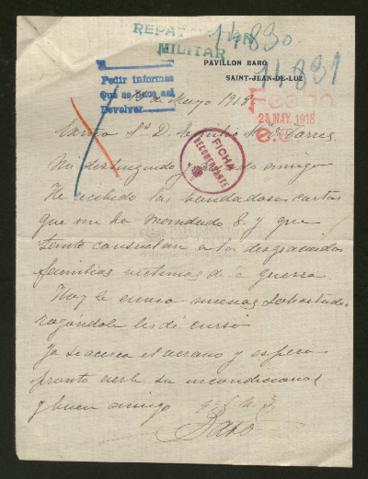 REPATRIACION 14830
MILITAR
PAVILLON BARO
SAINT-JEAN-DE-LUZ
14831
Pedir informes
Que se haga así
Devolver
de Mayo 1918
Fecha
23 MAY. 1918
Exmo Sr D.
FICHA
Mi distinguido y amigo
He recibido las bondadosas cartas
que me ha mandado S. y que
tanto consuelan a las desgraciadas
familias victimas de la guerra.
Hoy le envio nuevas
rogándole les dé curso
Ya se acerca el verano y espero
pronto verle su incondicional
y buen amigo
Baro